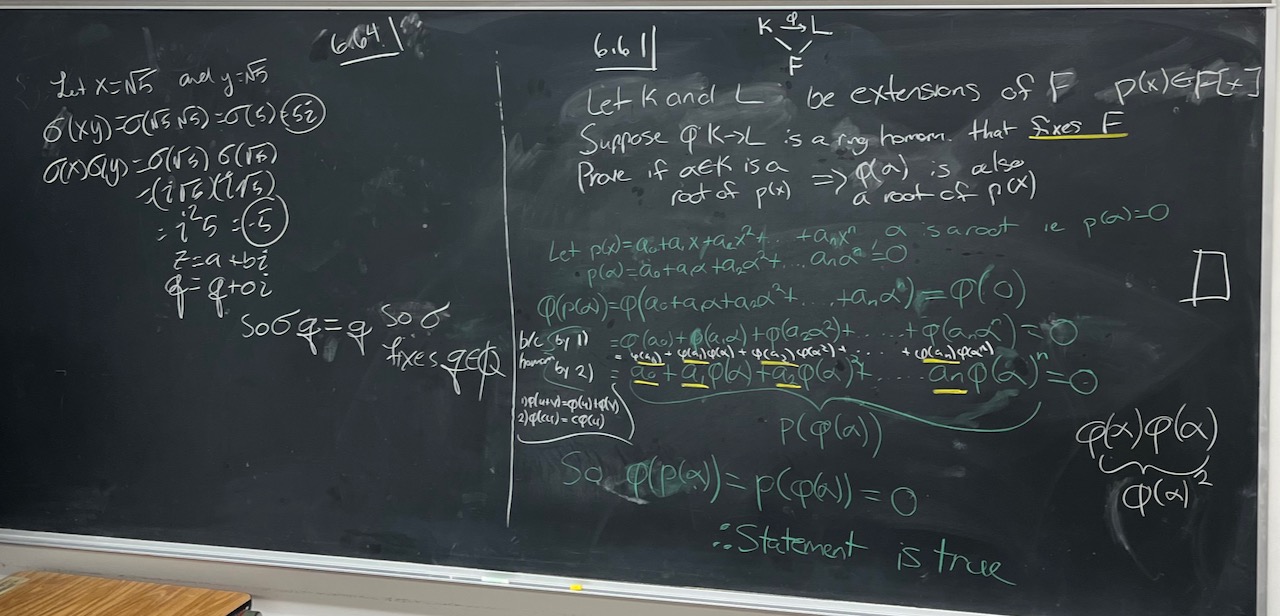 6.64
Let x=√5 and y=√5
σ(xy)=σ(√5 √5)=σ(5)=5i
σ(x)σ(y)=σ(√5) σ(√5)
=(i√5)(i√5)
=i²5 = -5
z=a+bi
q=q+0i
So σ q=q So σ
fixes q∈ℚ
6.61
K φ→ L
F
Let K and L be extensions of F p(x)∈F[x]
Suppose φ K→L is a ring homom. that fixes F
Prove if α∈K is a root of p(x) ⟹ φ(α) is also a root of p(x)
Let p(x)=a₀+a₁x+a₂x²+... +aₙxⁿ α is a root ie p(α)=0
p(α)=a₀+a₁α+a₂α²+... aₙαⁿ=0
φ(p(α))=φ(a₀+a₁α+a₂α²+...+aₙαⁿ)=φ(0)
b/c (by 1) =φ(a₀)+φ(a₁α)+φ(a₂α²)+.....+φ(aₙαⁿ)=0
homom = φ(a₀)+φ(a₁)φ(α)+φ(a₂)φ(α²)+... +φ(aₙ)φ(αⁿ)
by 2) = a₀+a₁φ(α)+a₂φ(α)²+.... aₙφ(α)ⁿ=0
1) φ(u+v)=φ(u)+φ(v)
2) φ(cu)=cφ(u)
p(φ(α))
So φ(p(α))=p(φ(α))=0
∴ Statement is true
φ(α)φ(α)
φ(α)²